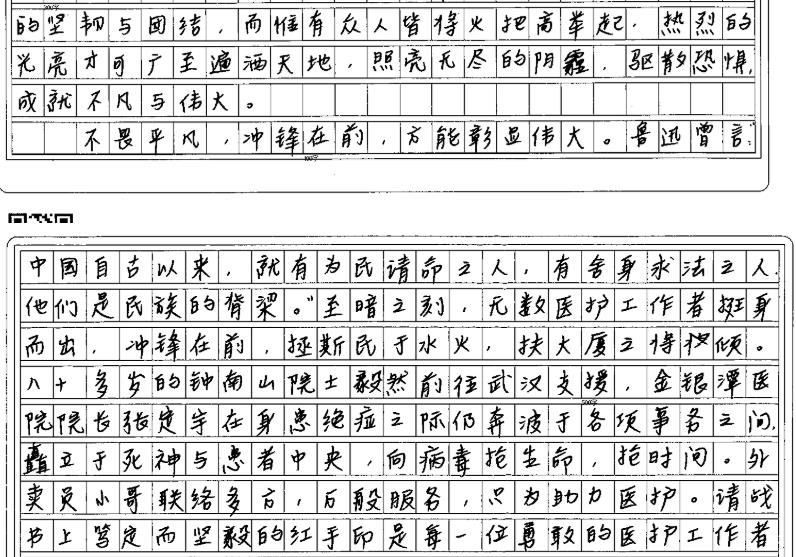 的坚韧与团结，而惟有众人皆将火把高举起，热烈的
光亮才可广至遍洒天地，照亮无尽的阴霾，驱散恐惧，
成就不凡与伟大。
不畏平凡，冲锋在前，方能彰显伟大。鲁迅曾言：
中国自古以来，就有为民请命之人，有舍身求法之人，
他们是民族的脊梁。”至暗之刻，无数医护工作者挺身
而出，冲锋在前，拯斯民于水火，扶大厦之将倾。
八十多岁的钟南山院士毅然前往武汉支援，金银潭医
院院长张定宇在身患绝症之际仍奔波于各项事务之间，
矗立于死神与患者中央，向病毒抢生命，抢时间。外
卖员小哥联络多方，万般服务，只为助力医护。请战
书上笃定而坚毅的红手印是每一位勇敢的医护工作者